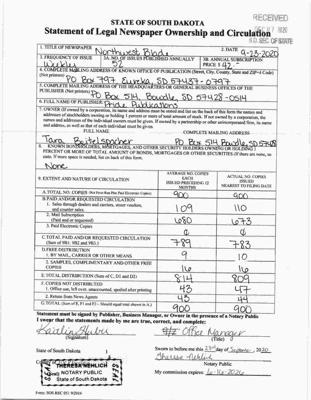 RECEIVED
STATE OF SOUTH DAKOTA
Statement of Legal Newspaper Ownership and Circulation
S.D. SEC OF STATE
1. TITLE OF NEWSPAPER Northwest Blade 2. DATE 9-23-2020
3. FREQUENCY OF ISSUE Weekly 3A. NO. OF ISSUES PUBLISHED ANNUALLY 52 3B. ANNUAL SUBSCRIPTION PRICE $ 42.-
4. COMPLETE MAILING ADDRESS OF KNOWN OFFICE OF PUBLICATION (Street, City, County, State and ZIP+4 Code)
(Not printers) PO Box 797, Eureka, SD 57437-0797
5. COMPLETE MAILING ADDRESS OF THE HEADQUARTERS OR GENERAL BUSINESS OFFICES OF THE
PUBLISHER (Not printers) PO Box 514, Bowdle, SD 57428-0514
6. FULL NAME OF PUBLISHER: Pride Publications
7. OWNER (If owned by a corporation, its name and address must be stated and also on the back of this form the names and
addresses of shareholders owning or holding 1 percent or more of total amount of stock. If not owned by a corporation, the
names and addresses of the individual owners must be given. If owned by a partnership or other unincorporated firm, its name
and address, as well as that of each individual must be given.
FULL NAME COMPLETE MAILING ADDRESS
Tara Beitelspacher PO Box 514, Bowdle, SD 57428
8. KNOWN BONDHOLDERS, MORTGAGES, AND OTHER SECURITY HOLDERS OWNING OR HOLDING 1
PERCENT OR MORE OF TOTAL AMOUNT OF BONDS, MORTGAGES OR OTHER SECURITIES (If there are none, so
state. If more space is needed, list on back of this form.
None
9. EXTENT AND NATURE OF CIRCULATION
AVERAGE NO. COPIES EACH ISSUED PRECEDING 12 MONTHS
ACTUAL NO. COPIES ISSUED NEAREST TO FILING DATE
A. TOTAL NO. COPIES (Net Press Run Plus Paid Electronic Copies) 900 900
B. PAID AND/OR REQUESTED CIRCULATION
1. Sales through dealers and carriers, street vendors,
and counter sales. 109 110
2. Mail Subscription
(Paid and or requested) 680 673
3. Paid Electronic Copies ¢ ¢
C. TOTAL PAID AND/OR REQUESTED CIRCULATION
(Sum of 9B1, 9B2 and 9B3.) 789 783
D. FREE DISTRIBUTION
1. BY MAIL, CARRIER OR OTHER MEANS 9 10
2. SAMPLES, COMPLIMENTARY AND OTHER FREE
COPIES 16 16
E. TOTAL DISTRIBUTION (Sum of C, D1 and D2) 814 809
F. COPIES NOT DISTRIBUTED
1. Office use, left over, unaccounted, spoiled after printing 43 47
2. Return from News Agents 43 44
G. TOTAL (Sum of E, F1 and F2 - Should equal total shown in A.) 900 900
Statement must be signed by Publisher, Business Manager, or Owner in the presence of a Notary Public
I swear that the statements made by me are true, correct, and complete:
Office Manager
(Signature) (Title)
State of South Dakota
Sworn to before me this 23rd day of September, 2020
Theresa Nehlich
Notary Public
THERESA NEHLICH
NOTARY PUBLIC
State of South Dakota
My commission expires: 6-16-2026
Form: SOS REC 051 9/2016